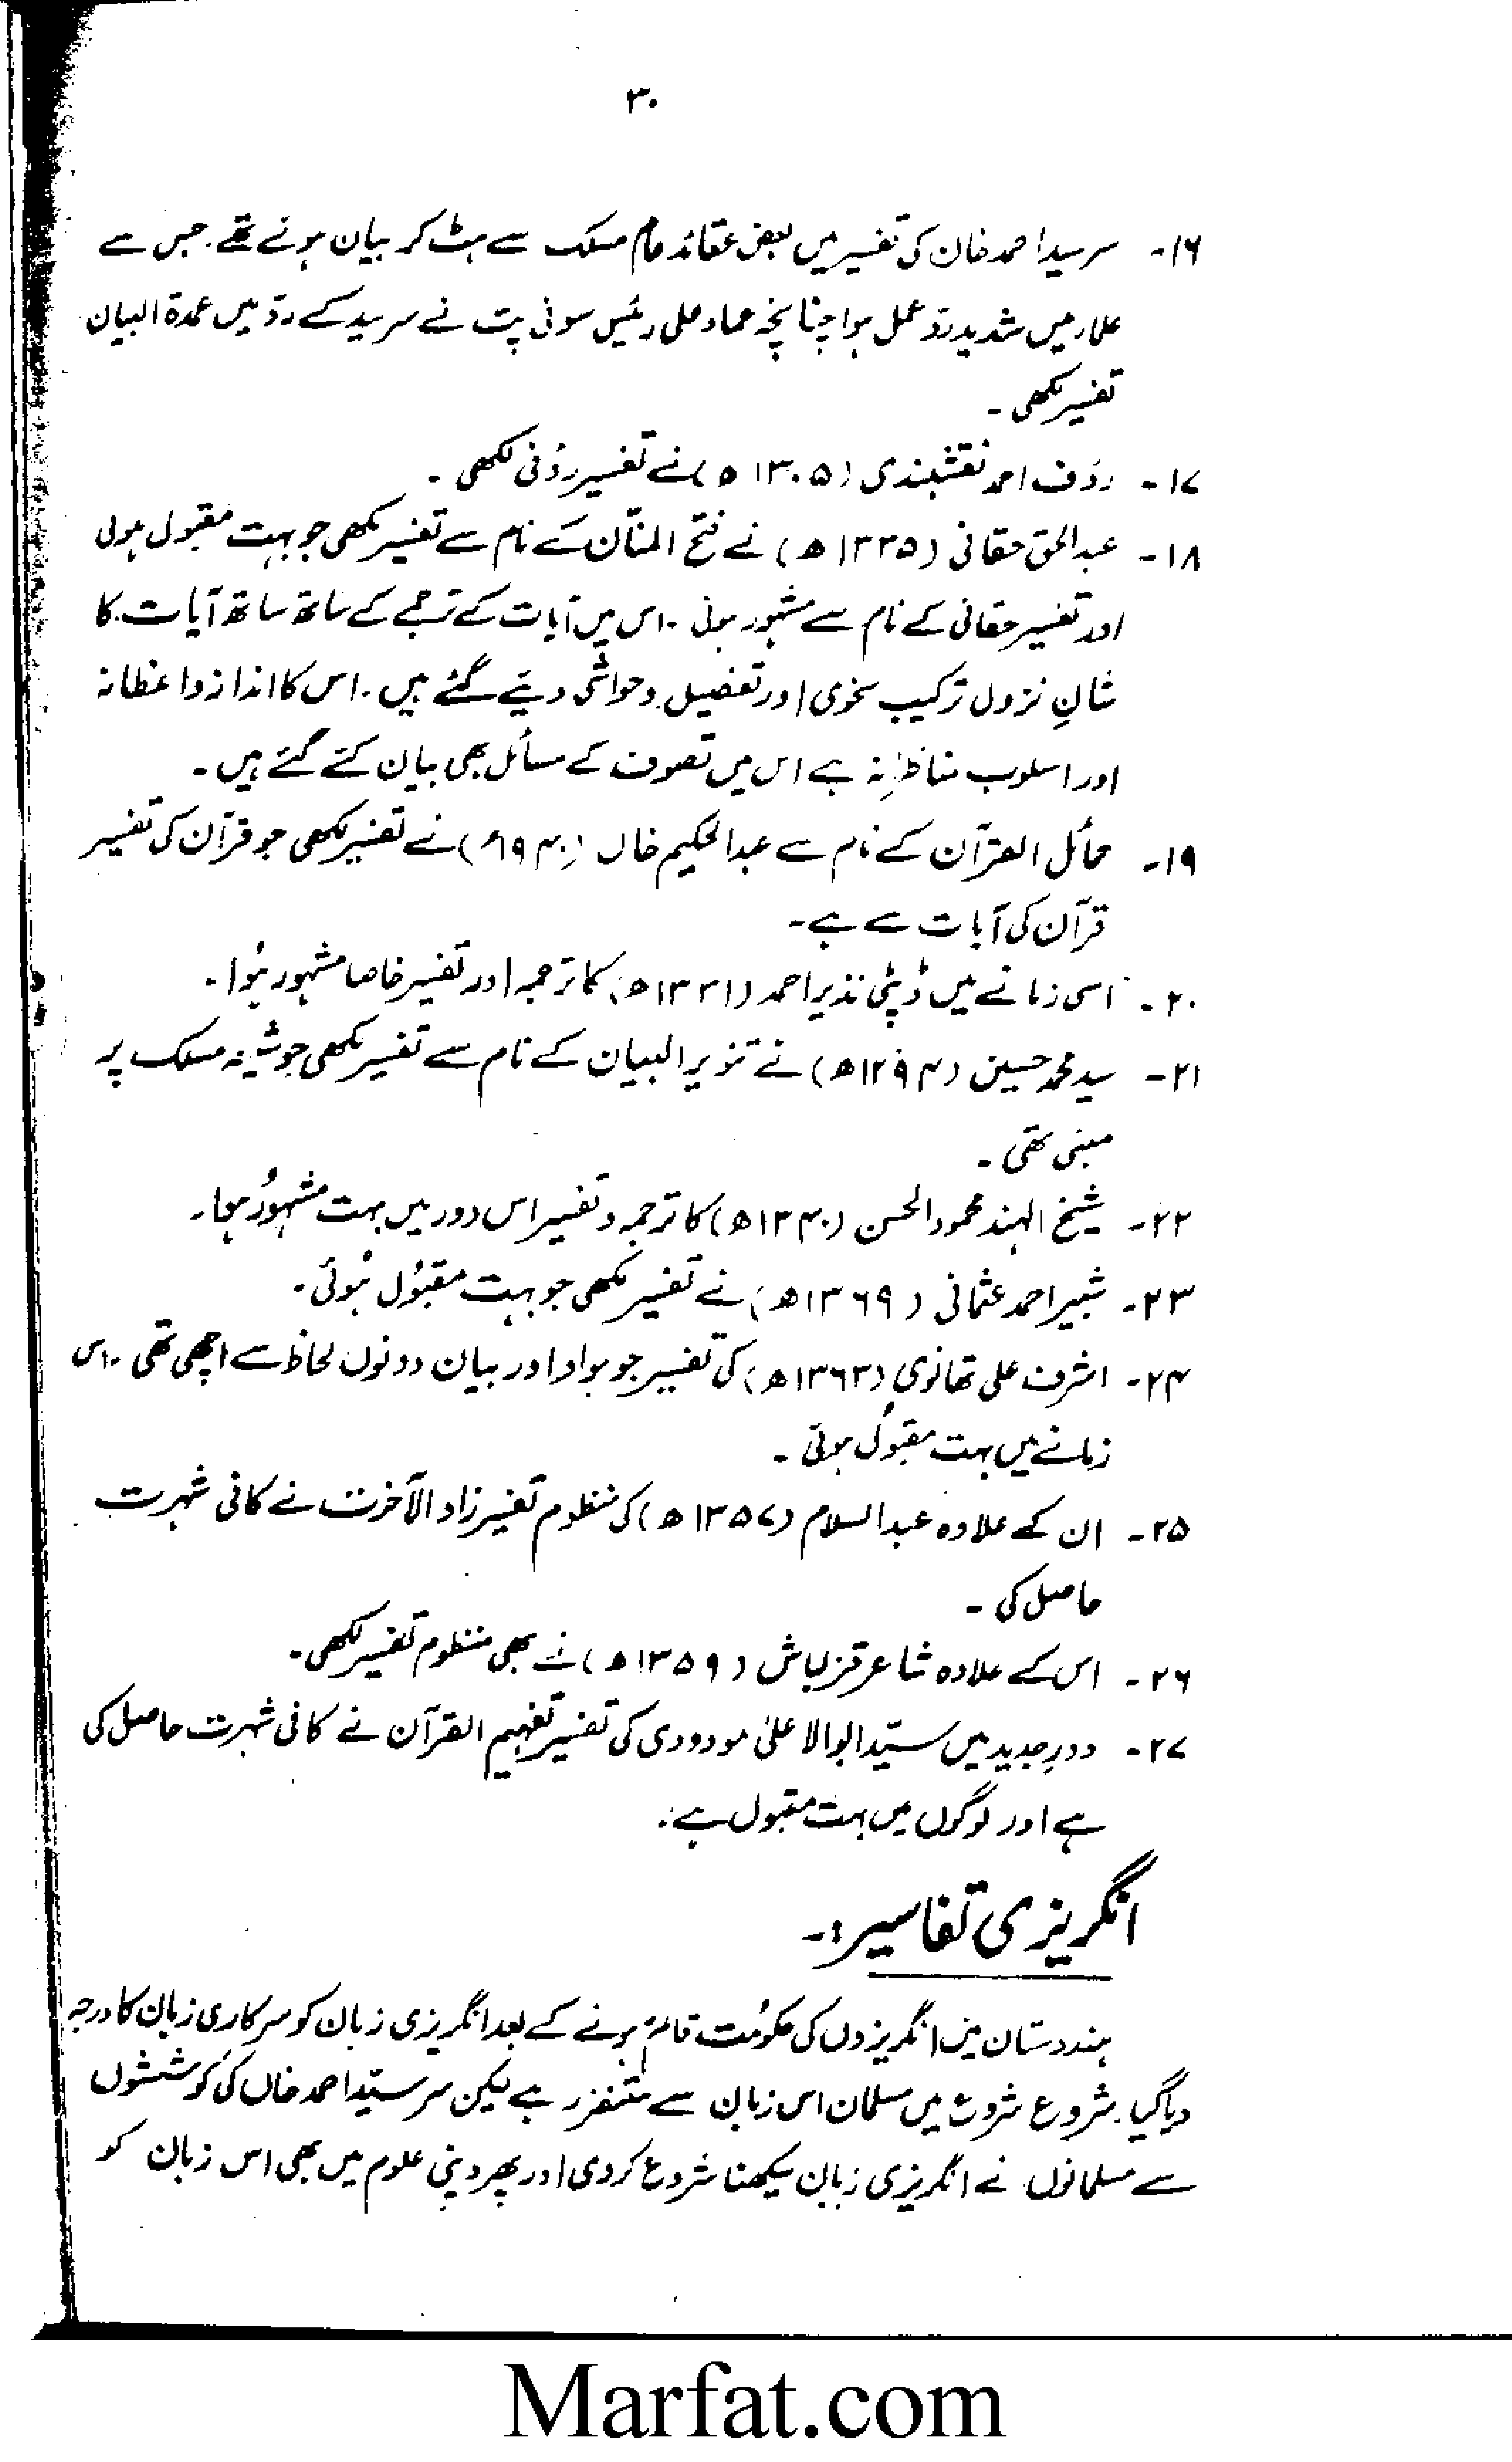 ۳۰
۱۶۔ سرسید احمد خان کی تفسیر میں بعض عقائد عام مسلک سے ہٹ کر بیان ہوئے تھے۔ جس سے
علماء میں شدید ردّ عمل ہوا چنانچہ عماد علی رئیس سونی پت نے سرسید کے ردّ میں عمدۃ البیان
تفسیر لکھی۔
۱۷۔ رؤف احمد نقشبندی (۱۳۰۵ ھ) نے تفسیر رؤفی لکھی۔
۱۸۔ عبدالحق حقانی (۱۳۳۵ ھ) نے فتح المنّان کے نام سے تفسیر لکھی جو بہت مقبول ہوئی
اور تفسیر حقانی کے نام سے مشہور ہوئی۔ اس میں آیات کے ترجمے کے ساتھ ساتھ آیات کا
شانِ نزول ترکیب نحوی اور تفصیل و حواشی دیئے گئے ہیں۔ اس کا انداز واعظانہ
اور اسلوب مناظرانہ ہے اس میں تصوف کے مسائل بھی بیان کئے گئے ہیں۔
۱۹۔ حمائل القرآن کے نام سے عبدالحکیم خاں (۱۹۴۰ء) نے تفسیر لکھی جو قرآن کی تفسیر
قرآن کی آیات سے ہے۔
۲۰۔ اسی زمانے میں ڈپٹی نذیر احمد (۱۳۳۱ھ) کا ترجمہ اور تفسیر خاصا مشہور ہُوا۔
۲۱۔ سید محمد حسین (۱۲۹۴ھ) نے تنویر البیان کے نام سے تفسیر لکھی جو شیعہ مسلک پر
مبنی تھی۔
۲۲۔ شیخ الہند محمود الحسن (۱۳۴۰ھ) کا ترجمہ و تفسیر اس دور میں بہت مشہُور ہوا۔
۲۳۔ شبیر احمد عثمانی (۱۳۶۹ھ) نے تفسیر لکھی جو بہت مقبُول ہُوئی۔
۲۴۔ اشرف علی تھانوی (۱۳۶۳ھ) کی تفسیر جو مواد اور بیان دونوں لحاظ سے اچھی تھی۔ اس
زمانے میں بہت مقبُول ہوئی۔
۲۵۔ ان کے علاوہ عبدالسلام (۱۳۵۷ھ) کی منظوم تفسیر زاد الآخرت نے کافی شہرت
حاصل کی۔
۲۶۔ اس کے علاوہ شاعر قزلباش (۱۳۵۹ھ) نے بھی منظوم تفسیر لکھی۔
۲۷۔ دورِ جدید میں سیّد ابوالاعلیٰ مودودی کی تفسیر تفہیم القرآن نے کافی شہرت حاصل کی
ہے اور لوگوں میں بہت مقبول ہے۔
انگریزی تفاسیر:۔
ہندوستان میں انگریزوں کی حکُومت قائم ہونے کے بعد انگریزی زبان کو سرکاری زبان کا درجہ
دیا گیا۔ شروع شروع میں مسلمان اس زبان سے متنفر رہے لیکن سر سیّد احمد خاں کی کوششوں
سے مسلمانوں نے انگریزی زبان سیکھنا شروع کر دی اور پھر دینی علوم میں بھی اس زبان کو
Marfat.com